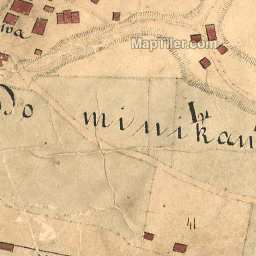 MapTiler.com
wa
Dominikan
41